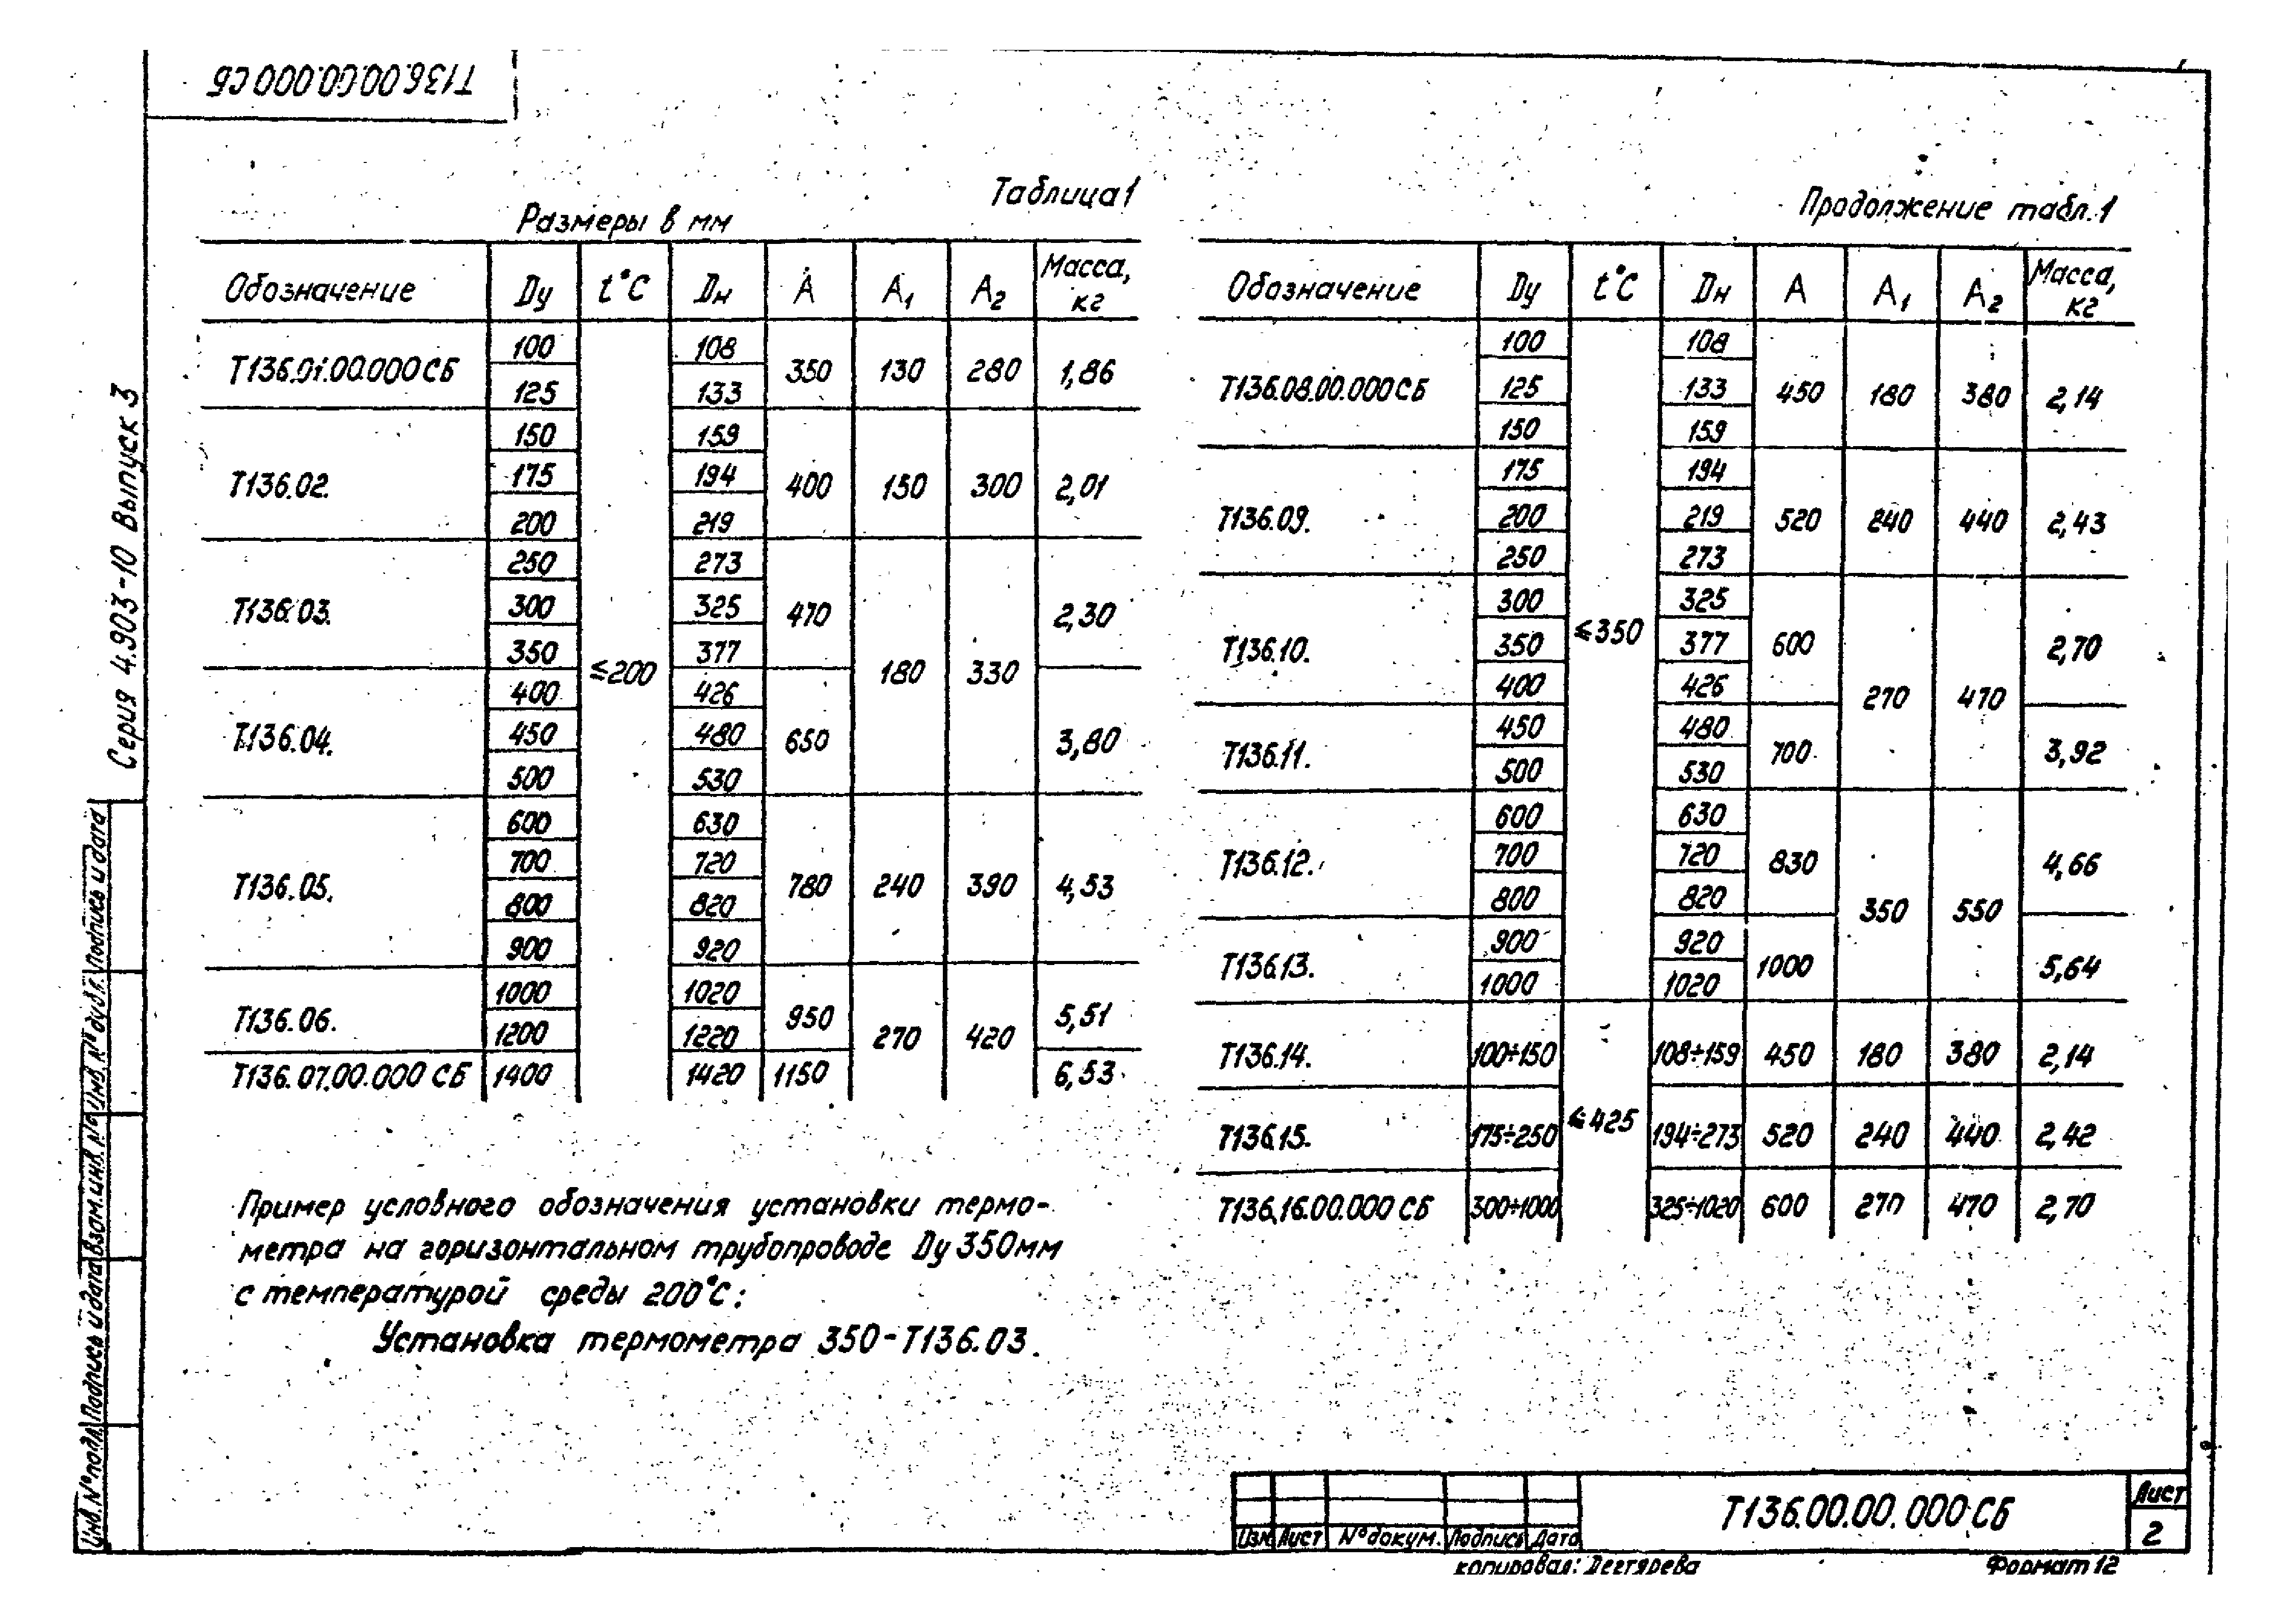 Т136.00.00.000 СБ
Серия 4.903-10 Выпуск 3
Таблица 1
Размеры в мм
Обозначение Ду t°С Дн А А1 А2 Масса, кг
Т136.01.00.000 СБ 100 108 350 130 280 1,86
125 133
Т136.02. 150 159 400 150 300 2,01
175 194
200 219
Т136.03. 250 273 470 2,30
300 325
350 377
≤200 180 330
Т136.04. 400 426 650 3,80
450 480
500 530
Т136.05. 600 630 780 240 390 4,53
700 720
800 820
900 920
Т136.06. 1000 1020 950 270 420 5,51
1200 1220
Т136.07.00.000 СБ 1400 1420 1150 6,53
Пример условного обозначения установки термо-
метра на горизонтальном трубопроводе Ду 350мм
с температурой среды 200°С:
Установка термометра 350-Т136.03.
Продолжение табл.1
Обозначение Ду t°С Дн А А1 А2 Масса, кг
Т136.08.00.000 СБ 100 108 450 180 380 2,14
125 133
150 159
Т136.09. 175 194 520 240 440 2,43
200 219
250 273
Т136.10. 300 ≤350 325 600 2,70
350 377
400 426
270 470
Т136.11. 450 480 700 3,92
500 530
Т136.12. 600 630 830 4,66
700 720
800 820
350 550
Т136.13. 900 920 1000 5,64
1000 1020
Т136.14. 100÷150 108÷159 450 180 380 2,14
Т136.15. 175÷250 ≤425 194÷273 520 240 440 2,42
Т136.16.00.000 СБ 300÷1000 325÷1020 600 270 470 2,70
Инв.№ подл. Подпись и дата Взам.инв.№ Инв.№ дубл. Подпись и дата
Т136.00.00.000 СБ
Лист
2
Изм Лист № докум. Подпись Дата
копировал: Дегтярева
Формат 12